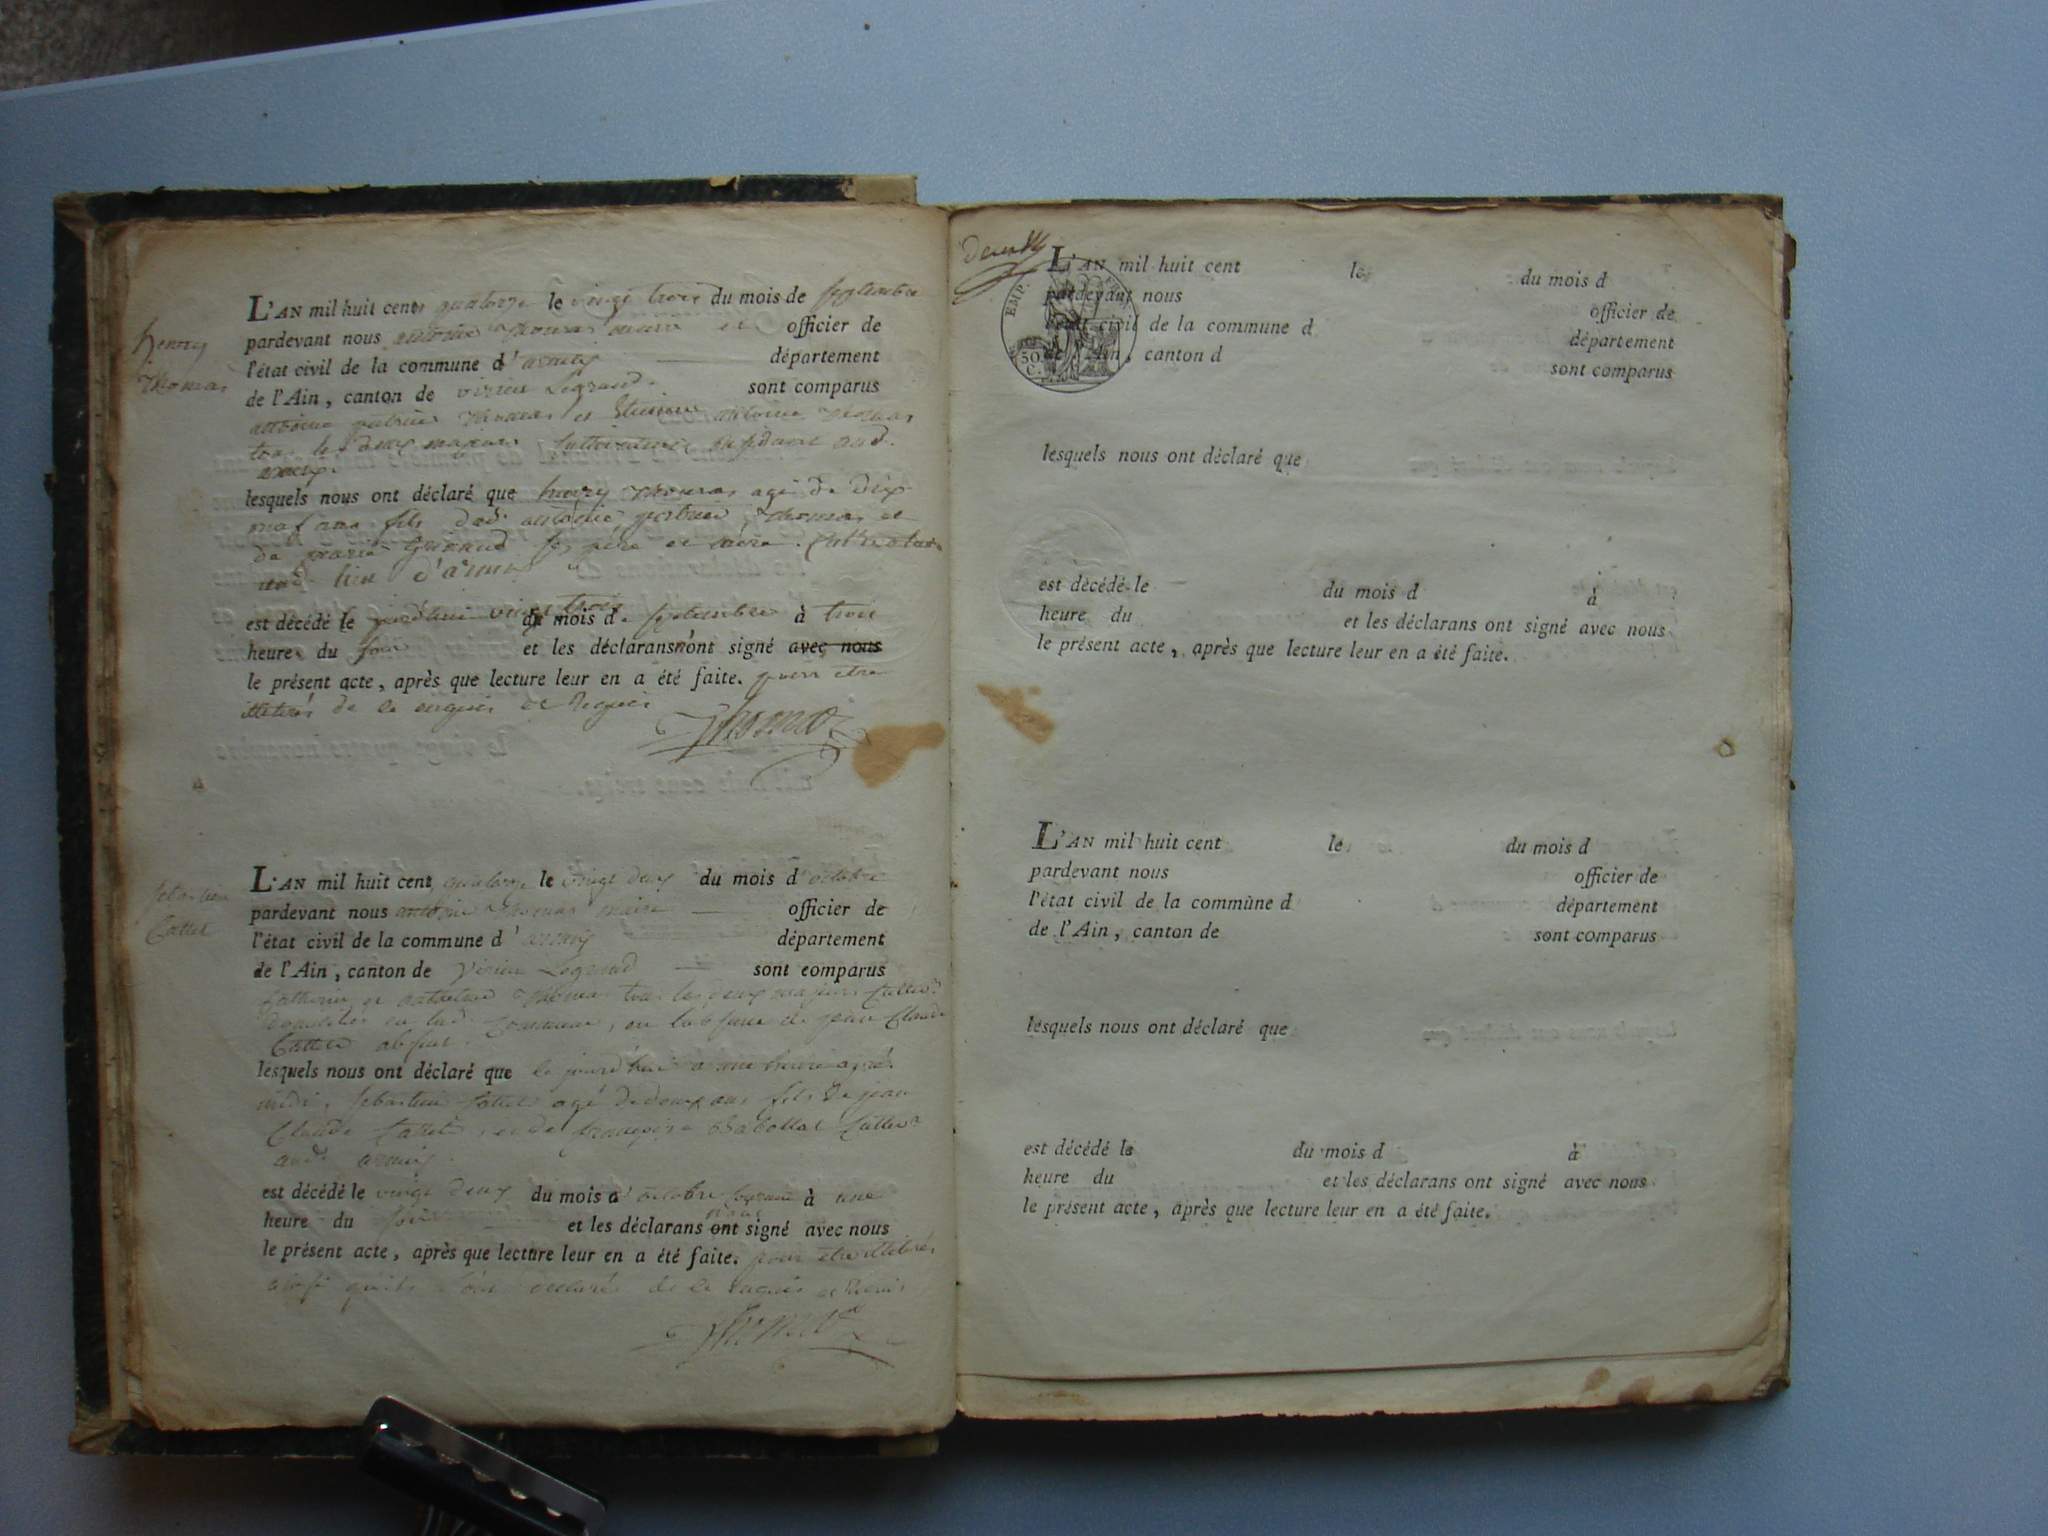 henry
thomas
L'AN mil huit cent quatorze le vingt trois du mois de septembre
pardevant nous antoine thomas maire et officier de
l'état civil de la commune d'armix département
de l'Ain, canton de virieu Legrand. sont comparus
antoine thomas et Etienne antoine thomas
tous les deux majeurs aud.
armix.
lesquels nous ont déclaré que henry thomas agé de dix
neuf ans fils dud. antoine thomas et
de marie ses père et mère.
aud. lieu d'armix
est décédé le jourdhui vingt trois du mois de septembre à trois
heures du soir et les déclarans n'ont signé avec nous
le présent acte, après que lecture leur en a été faite. pour etre
illeterés de ce enquis et Requis
Thomas
sebastien
Cattet
L'AN mil huit cent quatorze le vingt deux du mois d'octobre
pardevant nous antoine thomas maire officier de
l'état civil de la commune d'armix département
de l'Ain, canton de Virieu Legrand sont comparus
thomas tous les deux majeurs
en lad. commune, en labsence de jean Claude
Cattet absent.
lesquels nous ont déclaré que le jourd'hui a une heure après
midi, sebastien Cattet agé de douze ans fils de jean
Claude Cattet, et de françoise
aud. armix.
est décédé le vingt deux du mois d'octobre à une
heure du soir et les déclarans ont signé avec nous
le présent acte, après que lecture leur en a été faite. pour etre illiterés,
ainsi quils l'ont declaré de ce enquis et Requis
Thomas
L'AN mil huit cent le du mois d
pardevant nous officier de
l'état civil de la commune d département
de l'Ain, canton d sont comparus
EMP.
50
C.
lesquels nous ont déclaré que
est décédé le du mois d à
heure du et les déclarans ont signé avec nous
le présent acte, après que lecture leur en a été faite.
L'AN mil huit cent le du mois d
pardevant nous officier de
l'état civil de la commune d département
de l'Ain, canton de sont comparus
lesquels nous ont déclaré que
est décédé le du mois d à
heure du et les déclarans ont signé avec nous
le présent acte, après que lecture leur en a été faite.